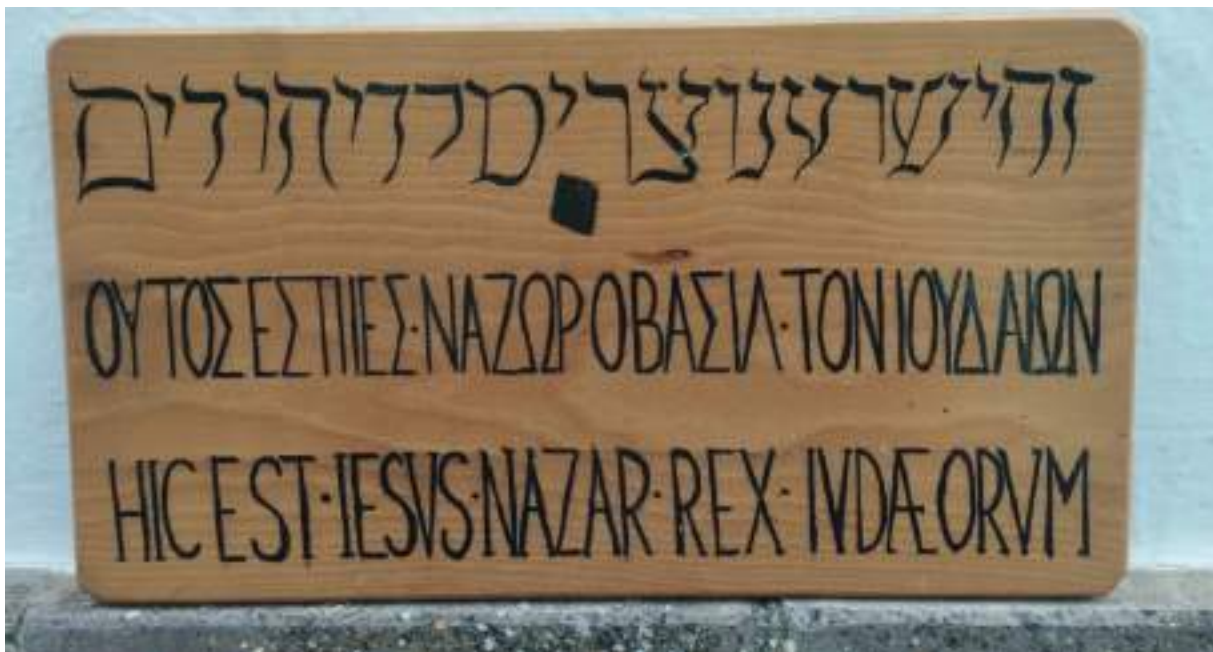 זהישועונוצריםכדיהודים
ΟΥΤΟΣ ΕΣΤΙΙΕΣ·ΝΑΖΩΡ Ο ΒΑΣΙΛ·ΤΟΝ ΙΟΥΔΑΙΩΝ
HIC EST·IESVS·NAZAR·REX·IVDÆORVM